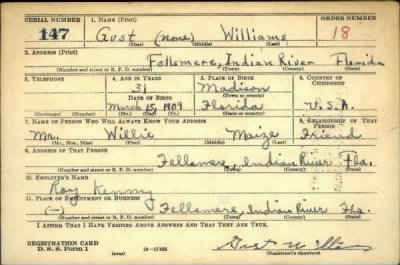 SERIAL NUMBER 1. NAME (Print) ORDER NUMBER
147 Gust (none) Williams 18
(First) (Middle) (Last)
2. ADDRESS (Print)
Fellsmere, Indian River Florida
(Number and street or R. F. D. number) (Town) (County) (State)
3. TELEPHONE 4. AGE IN YEARS 5. PLACE OF BIRTH 6. COUNTRY OF CITIZENSHIP
31 Madison
DATE OF BIRTH (Town or county)
March 15, 1909 Florida U.S.A.
(Exchange) (Number) (Mo.) (Day) (Yr.) (State or country)
7. NAME OF PERSON WHO WILL ALWAYS KNOW YOUR ADDRESS 8. RELATIONSHIP OF THAT PERSON
Mr. Willie Maize Friend
(Mr., Mrs., Miss) (First) (Middle) (Last)
9. ADDRESS OF THAT PERSON
Fellsmere, Indian River Fla.
(Number and street or R. F. D. number) (Town) (County) (State)
10. EMPLOYER'S NAME
Roy Kenny
11. PLACE OF EMPLOYMENT OR BUSINESS
(—) Fellsmere, Indian River Fla.
(Number and street or R. F. D. number) (Town) (County) (State)
I AFFIRM THAT I HAVE VERIFIED ABOVE ANSWERS AND THAT THEY ARE TRUE.
REGISTRATION CARD
D. S. S. Form 1 (over) 16—17105 (Registrant's signature)